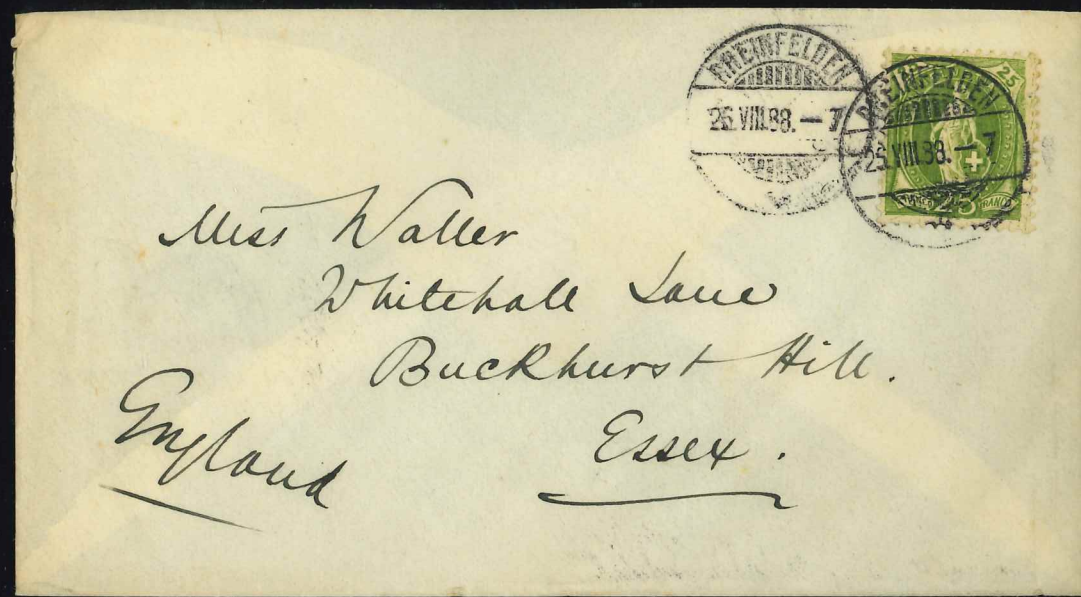 RHEINFELDEN
26.VIII.98.—7
RHEINFELDEN
26.VIII.98.—7
25
FRANCO
Miss Waller
Whitehall Lane
Buckhurst Hill.
Essex.
England